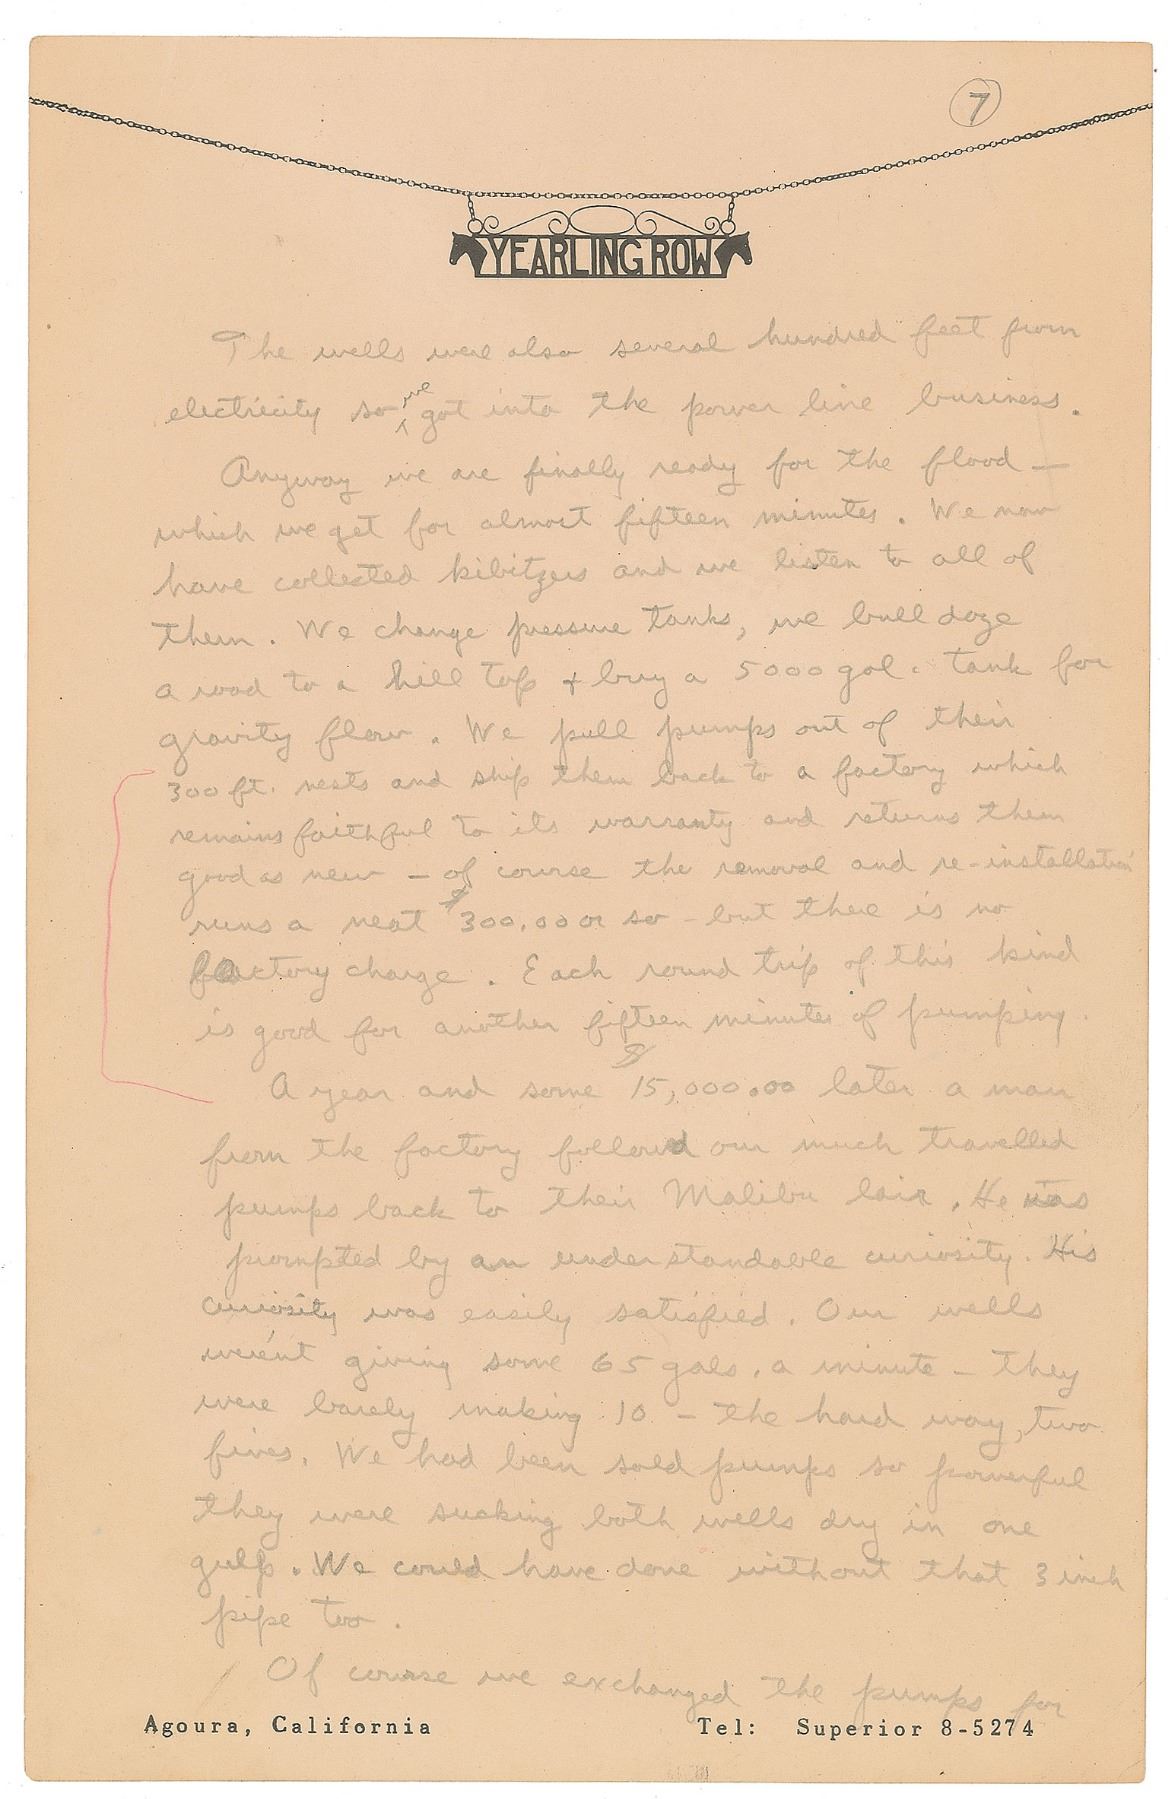 7
YEARLING ROW
The wells were also several hundred feet from
electricity so we got into the power line business.
Anyway we are finally ready for the flood —
which we get for almost fifteen minutes. We now
have collected kibitzers and we listen to all of
them. We change pressure tanks, we bull doze
a road to a hill top + buy a 5000 gal. tank for
gravity flow. We pull pumps out of their
300 ft. nests and ship them back to a factory which
remains faithful to its warranty and returns them
good as new — of course the removal and re-installation
runs a neat $300.00 or so - but there is no
factory charge. Each round trip of this kind
is good for another fifteen minutes of pumping.
A year and some $15,000.00 later a man
from the factory followed our much travelled
pumps back to their Malibu lair. He was
prompted by an understandable curiosity. His
curiosity was easily satisfied. Our wells
weren't giving some 65 gals. a minute — they
were barely making 10 — the hard way, two
fives. We had been sold pumps so powerful
they were sucking both wells dry in one
gulp. We could have done without that 3 inch
pipe too.
Of course we exchanged the pumps for
Agoura, California Tel: Superior 8-5274